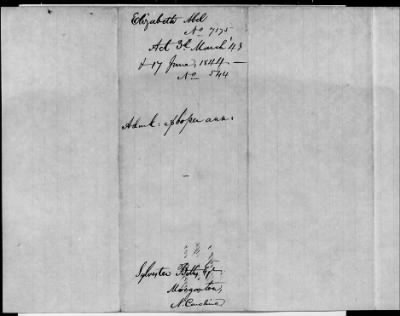 Elizabeth Abel
No 7175
Act 3d March '43
& 17 June, 1844 —
No 544
Admt: of
ann.
Sylvester Betts, Esqr
Morganton,
N. Carolina